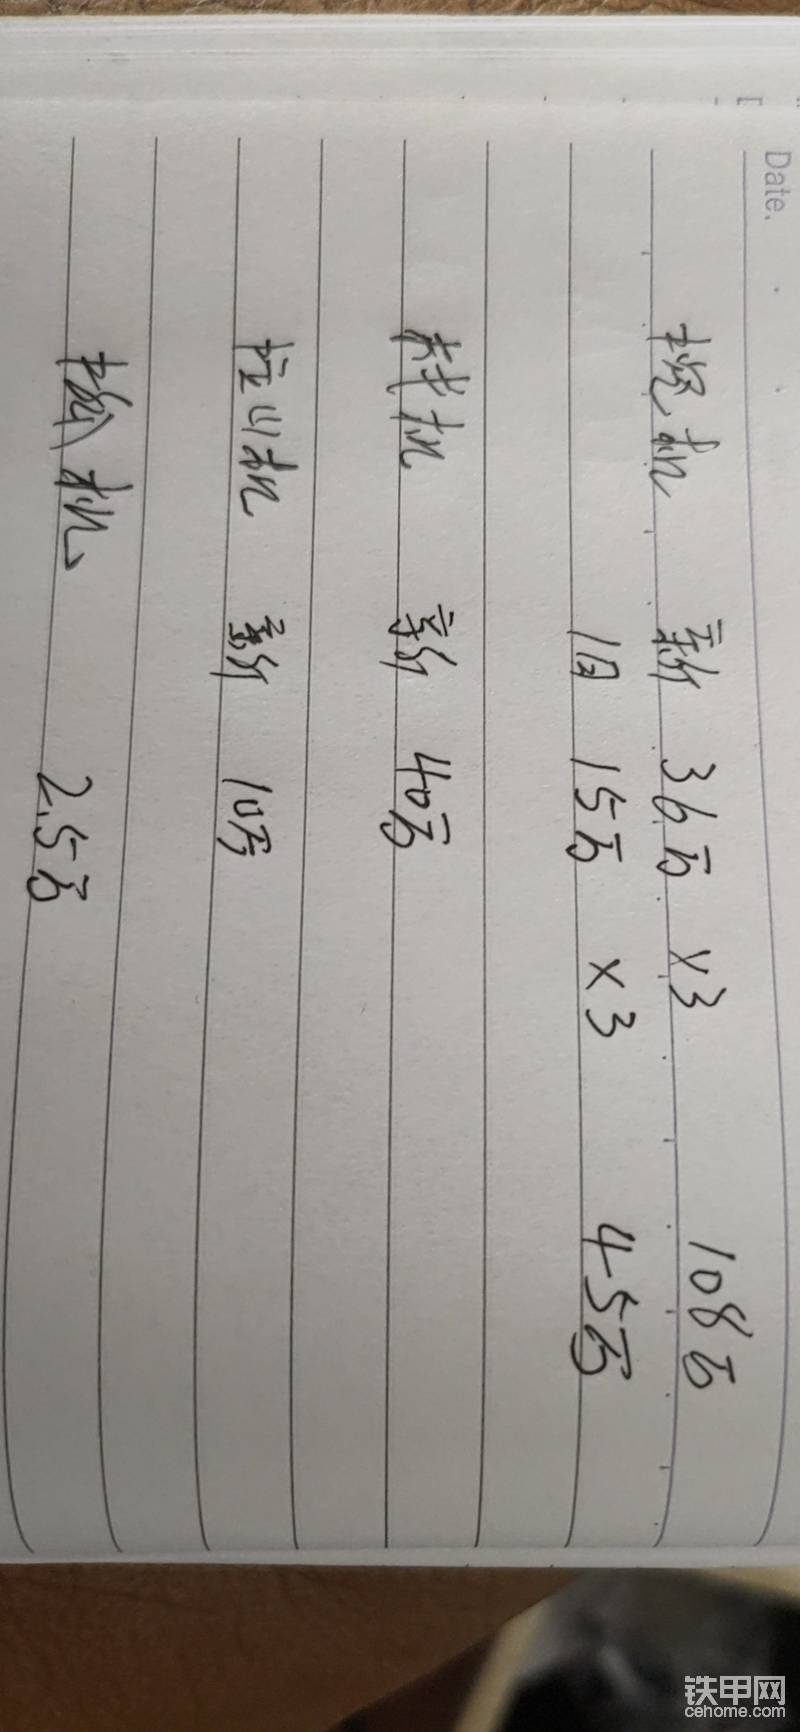 Date.
挖机 新 36万 ×3 108万
旧 15万 ×3 45万
机 新 40万
山机 新 10万
机 2.5万
铁甲网
cehome.com